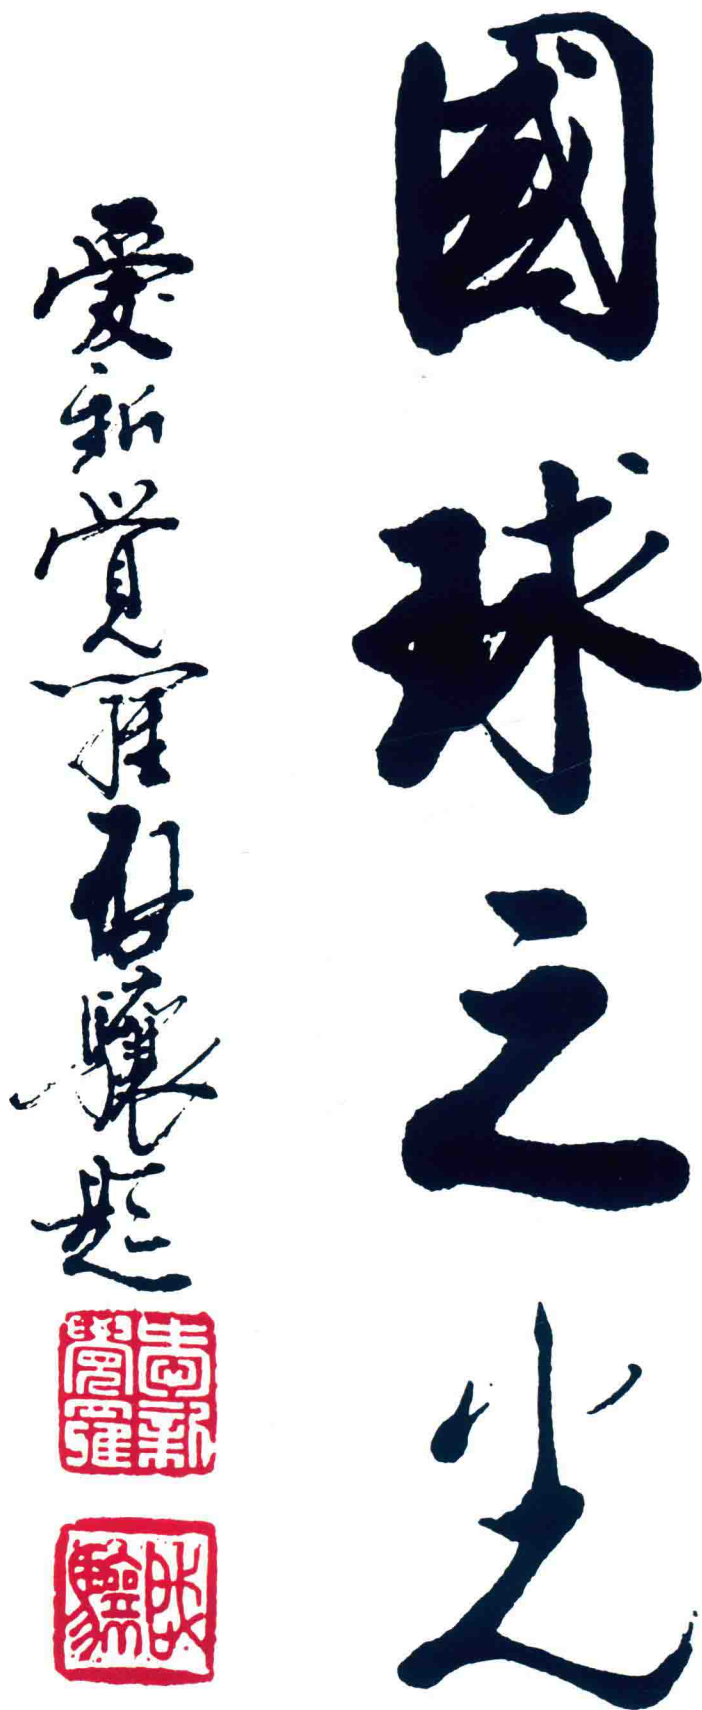 國球之光
愛新覺羅啟驤題
愛新
覺羅
啟驤